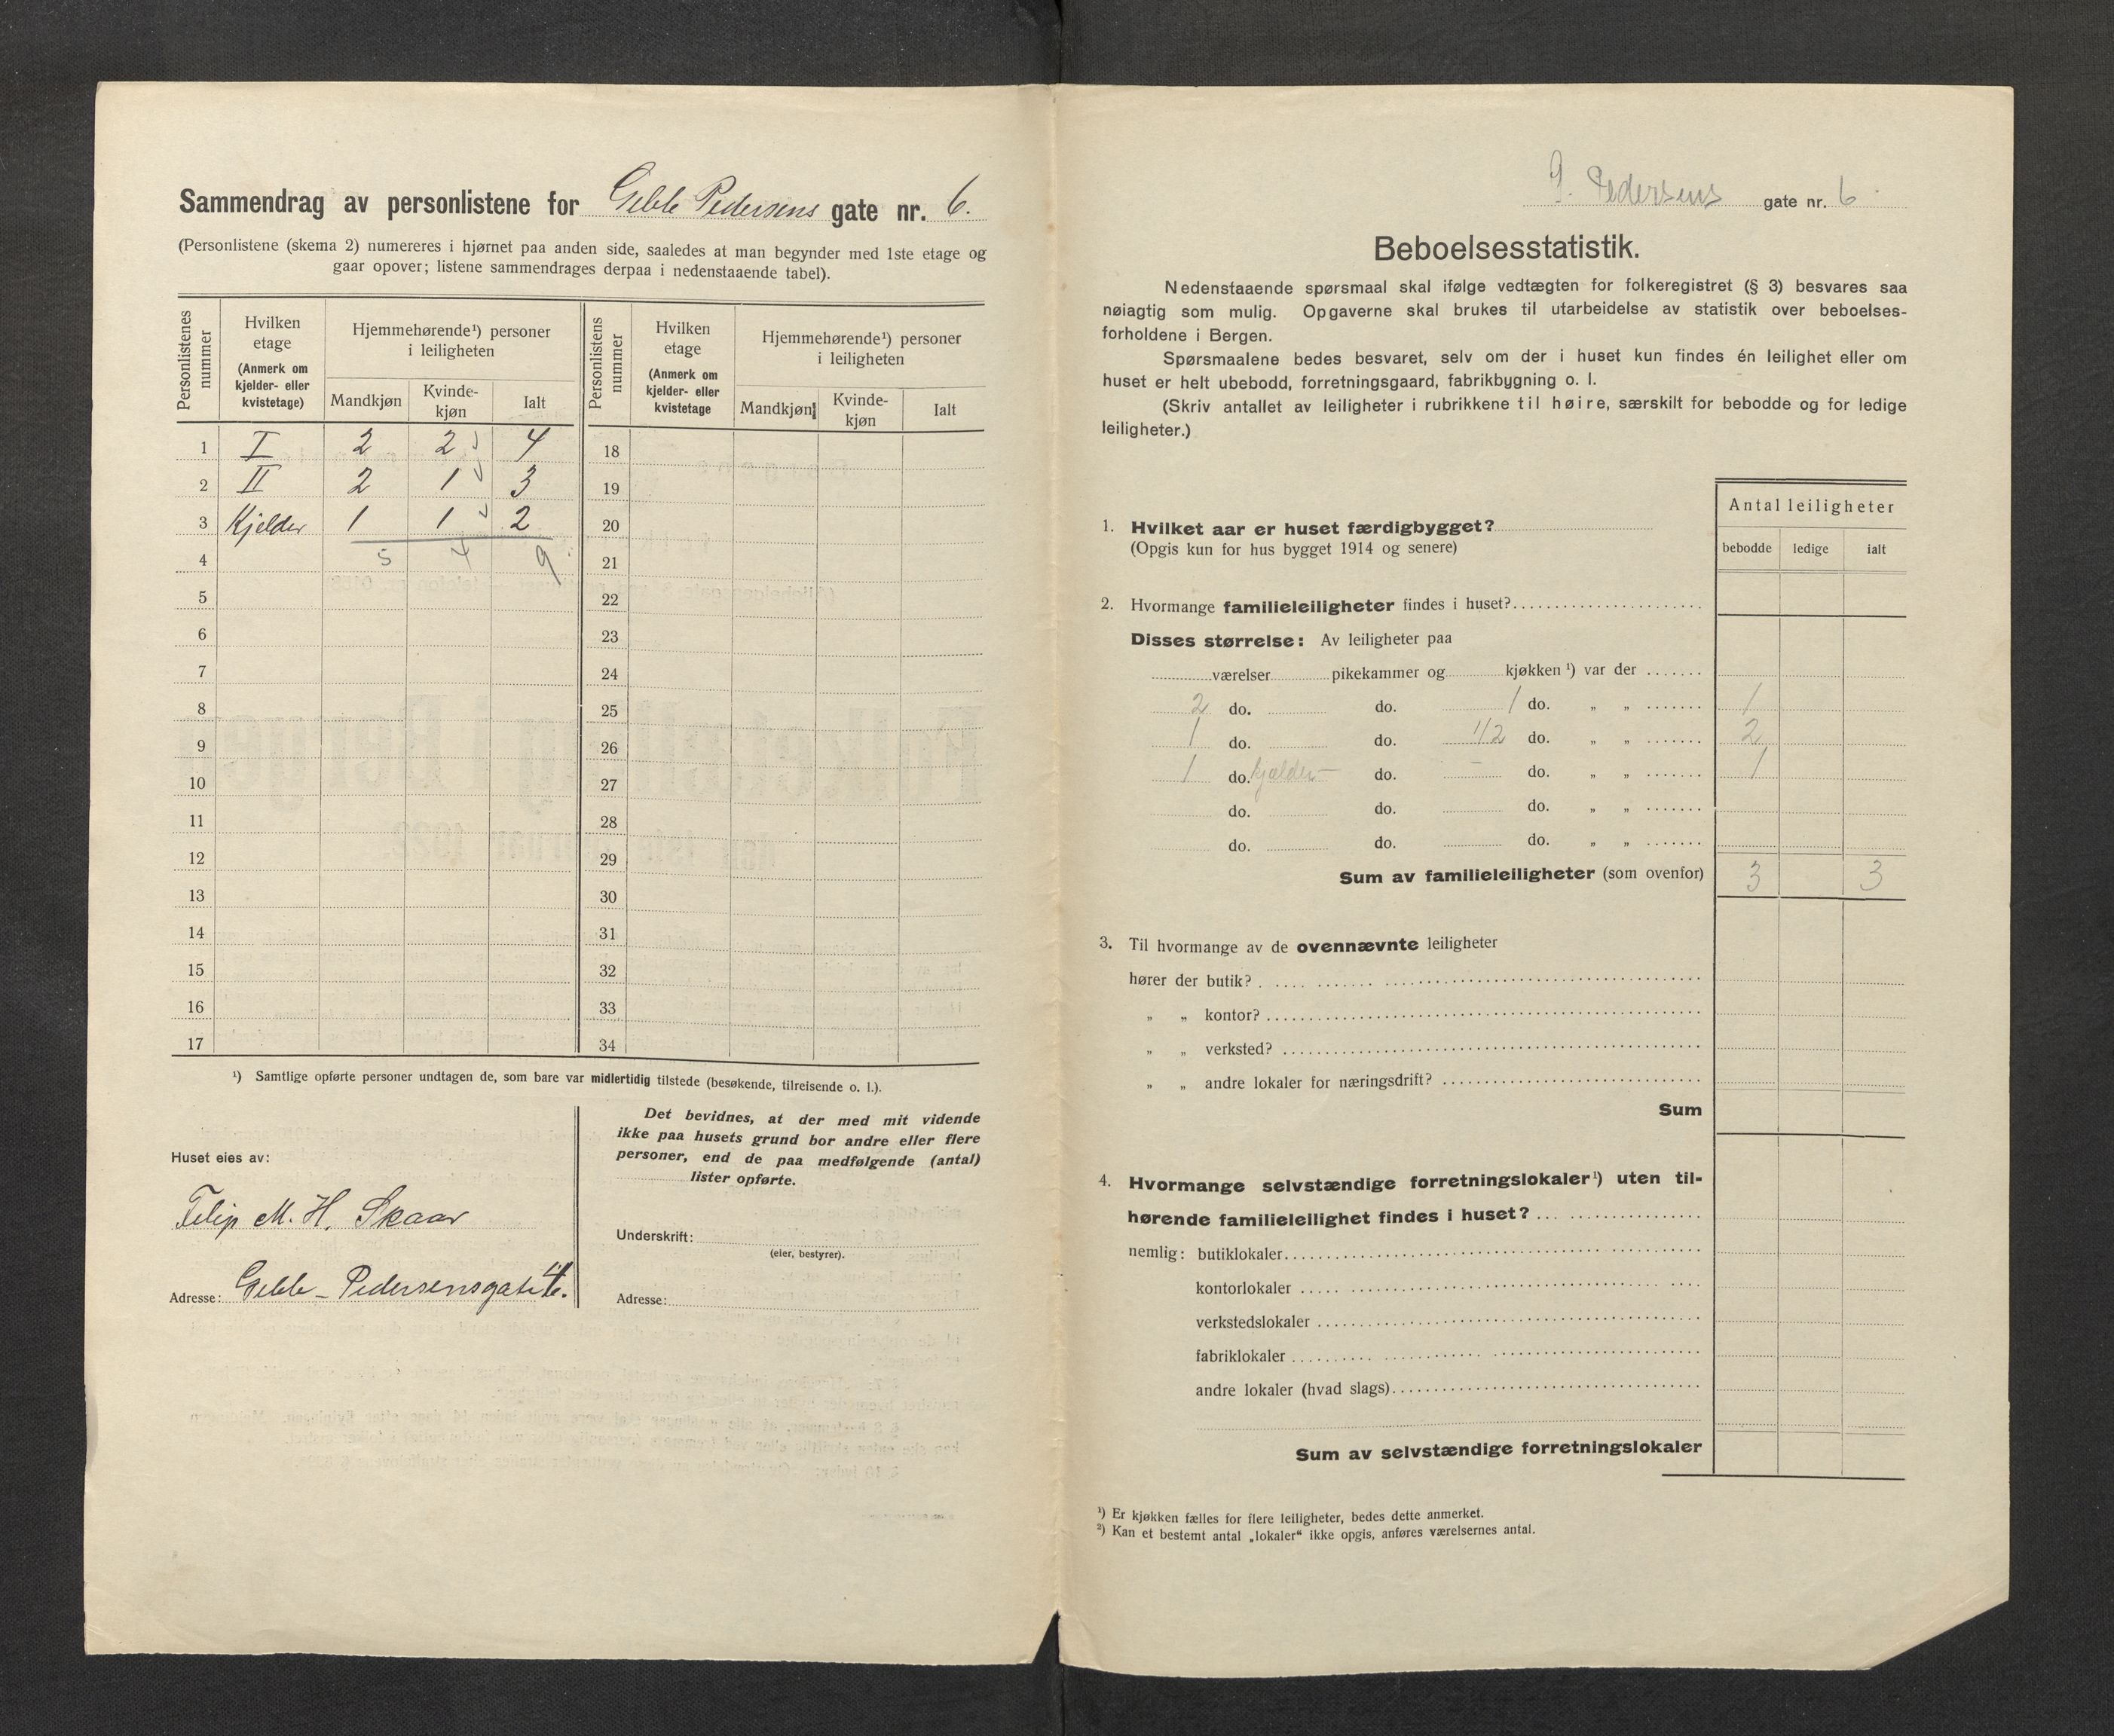 Sammendrag av personlistene for Geble Pedersens gate nr. 6.
(Personlistene (skema 2) numereres i hjørnet paa anden side, saaledes at man begynder med 1ste etage og
gaar opover; listene sammendrages derpaa i nedenstaaende tabel).
Personlistenes nummer
Hvilken etage (Anmerk om kjelder- eller kvistetage)
Hjemmehørende¹) personer i leiligheten
Mandkjøn Kvinde-kjøn Ialt
Personlistens nummer
Hvilken etage (Anmerk om kjelder- eller kvistetage
Hjemmehørende¹) personer i leiligheten
Mandkjøn Kvinde-kjøn Ialt
1 I 2 2 4 18
2 II 2 1 3 19
3 Kjelder 1 1 2 20
4 5 4 9 21
5 22
6 23
7 24
8 25
9 26
10 27
11 28
12 29
13 30
14 31
15 32
16 33
17 34
¹) Samtlige opførte personer undtagen de, som bare var midlertidig tilstede (besøkende, tilreisende o. l.).
Huset eies av:
Filip M. H. Skaar
Adresse: Geble-Pedersensgate 4.
Det bevidnes, at der med mit vidende
ikke paa husets grund bor andre eller flere
personer, end de paa medfølgende (antal)
lister opførte.
Underskrift:
(eier, bestyrer).
Adresse:
G. Pedersens gate nr. 6
Beboelsesstatistik.
Nedenstaaende spørsmaal skal ifølge vedtægten for folkeregistret (§ 3) besvares saa
nøiagtig som mulig. Opgaverne skal brukes til utarbeidelse av statistik over beboelses-
forholdene i Bergen.
Spørsmaalene bedes besvaret, selv om der i huset kun findes én leilighet eller om
huset er helt ubebodd, forretningsgaard, fabrikbygning o. l.
(Skriv antallet av leiligheter i rubrikkene til høire, særskilt for bebodde og for ledige
leiligheter.)
Antal leiligheter
bebodde ledige ialt
1. Hvilket aar er huset færdigbygget?
(Opgis kun for hus bygget 1914 og senere)
2. Hvormange familieleiligheter findes i huset?
Disses størrelse: Av leiligheter paa
værelser pikekammer og kjøkken ¹) var der
2 do. do. 1 do. „ „ 1
1 do. do. 1/2 do. „ „ 2
1 do. kjælder do. - do. „ „ 1
do. do. do. „ „
do. do. do. „ „
Sum av familieleiligheter (som ovenfor) 3 3
3. Til hvormange av de ovennævnte leiligheter
hører der butik?
„ „ kontor?
„ „ verksted?
„ „ andre lokaler for næringsdrift?
Sum
4. Hvormange selvstændige forretningslokaler¹) uten til-
hørende familieleilighet findes i huset?
nemlig: butiklokaler
kontorlokaler
verkstedslokaler
fabriklokaler
andre lokaler (hvad slags)
Sum av selvstændige forretningslokaler
¹) Er kjøkken fælles for flere leiligheter, bedes dette anmerket.
²) Kan et bestemt antal „lokaler“ ikke opgis, anføres værelsernes antal.